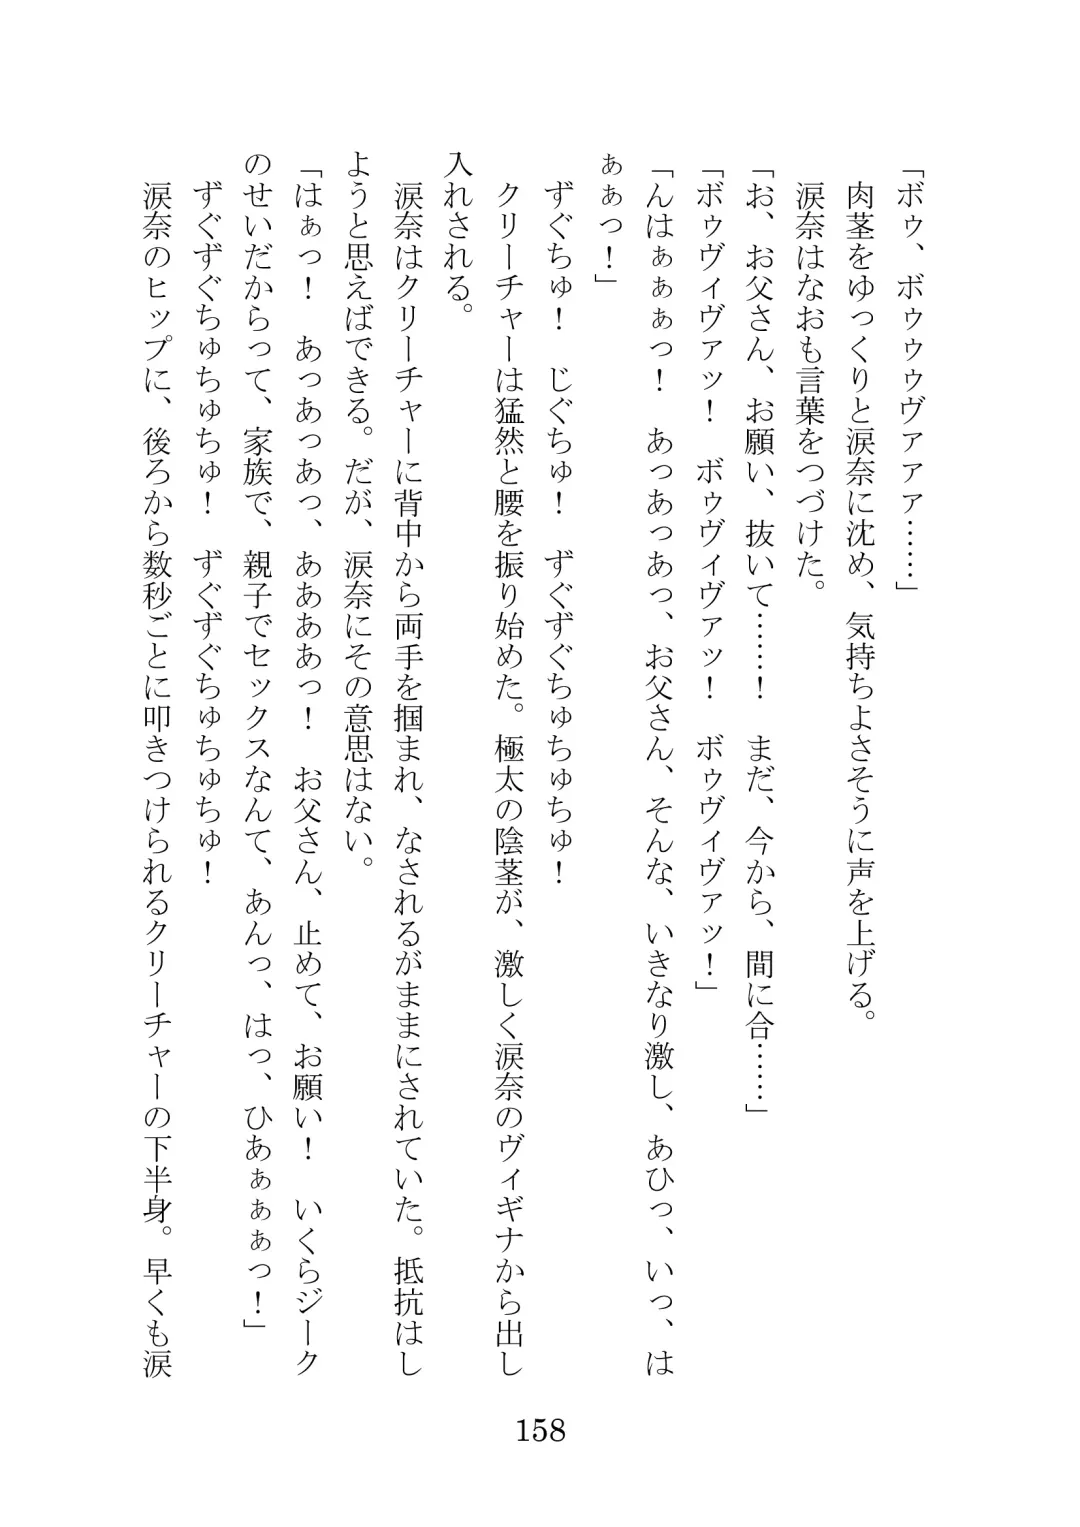 「ボゥ、ボゥゥゥヴァァァ……」
肉茎をゆっくりと涙奈に沈め、気持ちよさそうに声を上げる。
涙奈はなおも言葉をつづけた。
「お、お父さん、お願い、抜いて……！　まだ、今から、間に合……」
「ボゥヴィヴァッ！　ボゥヴィヴァッ！　ボゥヴィヴァッ！」
「んはぁぁぁっ！　あっあっあっ、お父さん、そんな、いきなり激し、あひっ、いっ、は
ぁぁっ！」
ずぐちゅ！　じぐちゅ！　ずぐずぐちゅちゅちゅ！
クリーチャーは猛然と腰を振り始めた。極太の陰茎が、激しく涙奈のヴィギナから出し
入れされる。
涙奈はクリーチャーに背中から両手を掴まれ、なされるがままにされていた。抵抗はし
ようと思えばできる。だが、涙奈にその意思はない。
「はぁっ！　あっあっあっ、ああああっ！　お父さん、止めて、お願い！　いくらジーク
のせいだからって、家族で、親子でセックスなんて、あんっ、はっ、ひあぁぁぁっ！」
ずぐずぐちゅちゅちゅ！　ずぐずぐちゅちゅちゅ！
涙奈のヒップに、後ろから数秒ごとに叩きつけられるクリーチャーの下半身。早くも涙
158